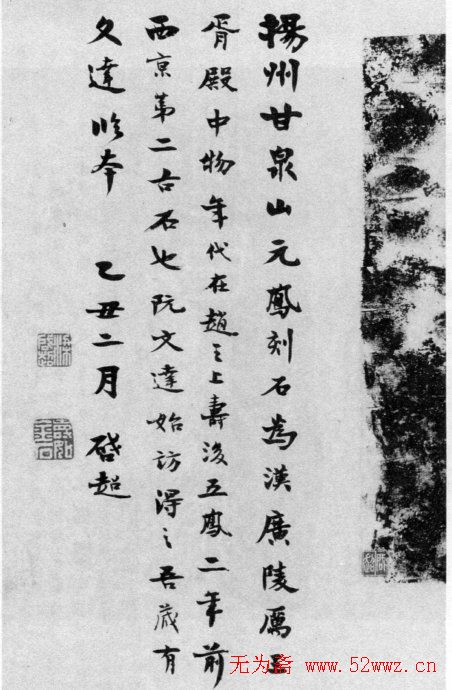 揚州甘泉山元鳳刻石為漢廣陵厲王
胥殿中物年代在趙之上壽後五鳳二年前
西京第二古石也阮文達始訪得之吾藏有
文達臨本 乙丑二月 啓超
无为斋 www.52wwz.cn